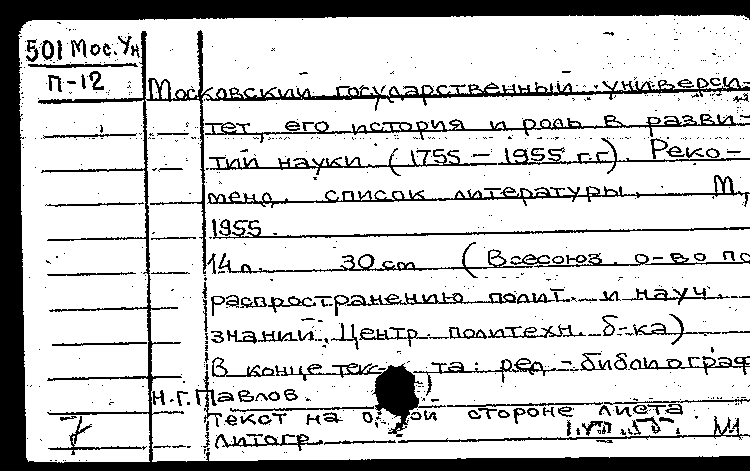 501 Мос. Ун
П-12
Московский государственный универси-
тет, его история и роль в разви-
тии науки (1755 – 1955 г.г). Реко-
менд. список литературы. М.,
1955.
14 л. 30 см (Всесоюз. о-во по
распространению полит. и науч.
знаний, Центр. политехн. б-ка)
В конце текс та: ред.-библиограф
Н.Г. Павлов.
Текст на одной стороне листа.
Литогр. 1.VII.55. М